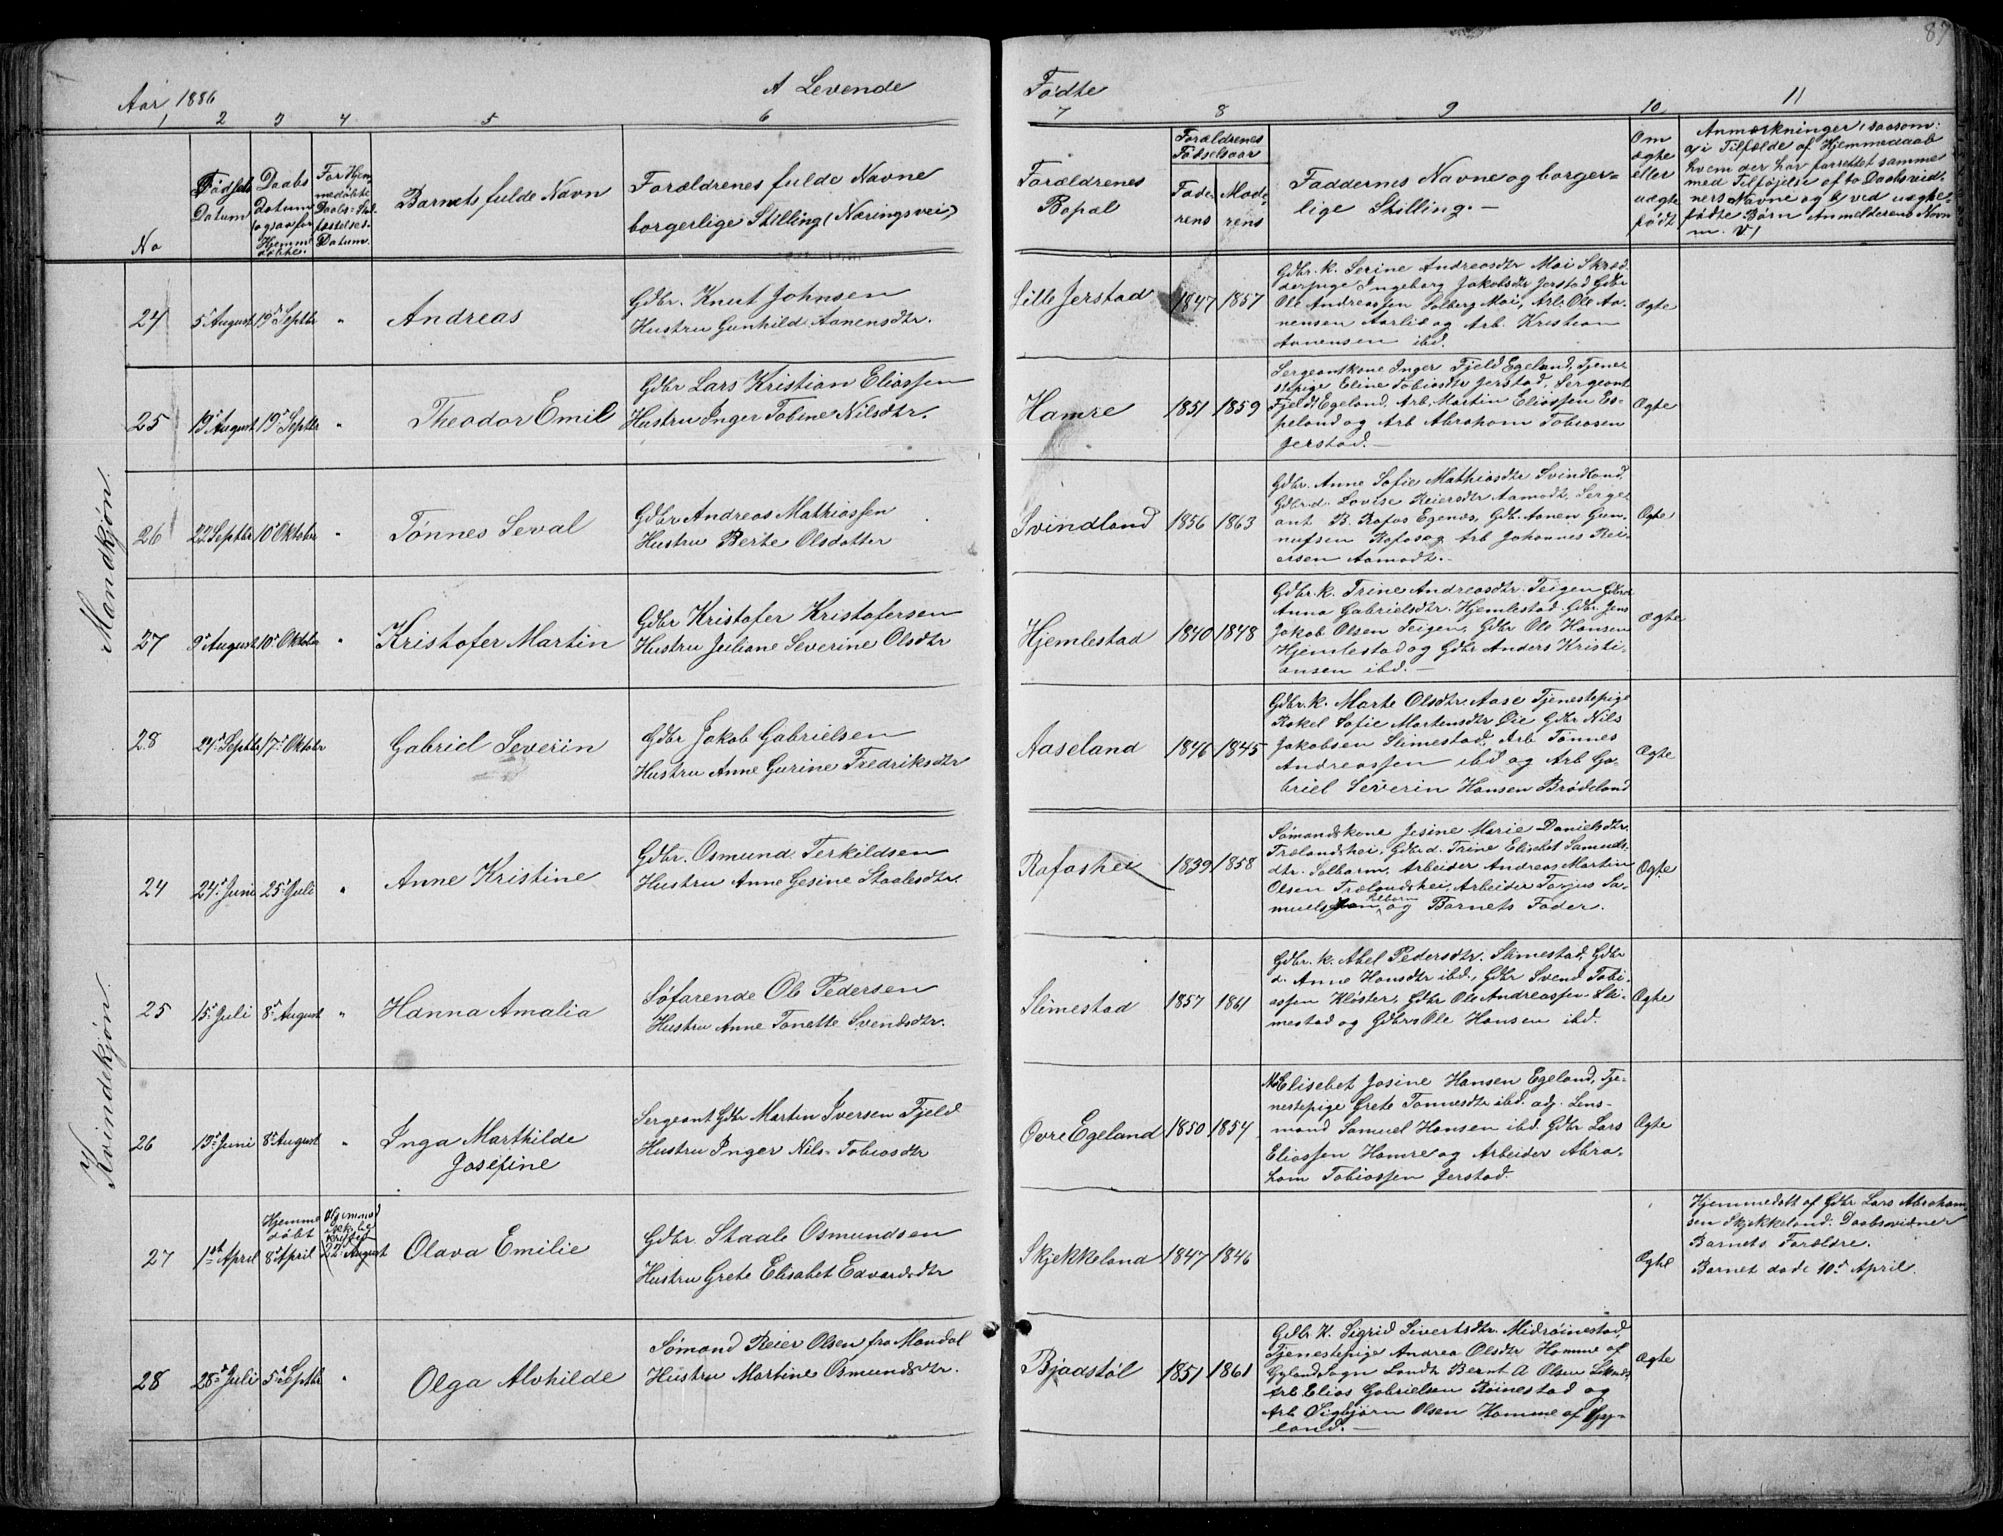 87
Aar 1886
A Levende
Fødte
1 2 3 4 5 6 7 8 9 10 11
No
Fødsels
Datum
Daabs
Datum
ogsaa for
Hjemme
døbte.
For Hjem
medøbte
Daabs-Stad
fæstelses
Datum.
Barnets fulde Navn
Forældrenes fulde Navne
borgerlige Stilling (Næringsvei)
Forældrenes
Bopæl
Forældrenes
Fødselsaar
Fade-
rens
Mode-
rens
Faddernes Navne og borger=
lige Stilling.-
Om
ægte
eller
uægte
født
Anmærkninger, saasom:
a, i Tilfælde af Hjemmedaab
hvem der har forrettet samme
med Tilføjelse af to Daabsvid-
ners Navne og b, ved uægte-
fødte Børn Anmelderens Navn
m. v.
Mandkjøn.
24
5 August
19 Septbr
"
Andreas
Gdbr. Knut Johnsen
Hustru Gunhild Aanensdtr.
Lille Jerstad
1847
1857
Gdbr. k. Serine Andreasdtr Moi Skræd-
derpige Ingeborg Jakobsdtr Jerstad Gdbr
Ole Andreassen Solberg Moi, Arb. Ole Aa-
nensen Aarli og Arb. Kristian
Aanensen ibd.
Ægte
25
19 August
19 Septbr
"
Theodor Emil
Gdbr Lars Kristian Eliassen
Hustru Inger Tobine Nilsdtr.
Hamre
1851
1859
Sergeantkone Inger Fjeld Egeland, Tjene-
stepige Eline Tobiasdtr Jerstad, Sergeant
Fjeld Egeland, Arb. Martin Eliassen Es-
peland og Arb Abraham Tobiasen
Jerstad.-
Ægte
26
22 Septbr
10 Oktober
"
Tønnes Seval
Gdbr Andreas Mathiassen
Hustru Berte Olsdatter
Svindland
1856
1863
Gdbr. Anne Sofie Mathiasdtr Svindland,
Gdbrd. Lovise Reiersdtr Aamodt, Serge-
ant B. Rafos Egenes, Gdbr. Aanen Gun-
nufsen Rafos og Arb Johannes Rei-
ersen Aamodt.-
Ægte
27
9 August
10 Oktober
"
Kristofer Martin
Gdbr Kristofer Kristofersen
Hustru Juliane Severine Olsdtr
Hjemlestad
1840
1848
Gdbr. k. Trine Andreasdtr. Teigen
Anna Gabrielsdtr. Hjemlestad. Gdbr. Jens
Jakob Olsen Teigen, Gdbr Ole Hansen
Hjemlestad og Gdbr Anders Kristi-
ansen ibd.-
Ægte
28
24 Septbr
17 Oktobr
Gabriel Severin
Gdbr Jakob Gabrielsen
Hustru Anne Gurine Fredriksdtr
Aaseland
1846
1845
Gdbr. k. Marte Olsdtr. Aase Tjenestepige
Rakel Sofie Martensdtr Øie Gdbr Nils
Jakobsen Slimestad, Arb Tønnes
Andreassen ibd og Arb Ga-
briel Severin Hansen Brødeland
Ægte
Kvindekjøn.
24
24 Juni
25 Juli
"
Anne Kristine
Gdbr. Osmund Terkildsen
Hustru Anne Gesine Staalesdtr.
Rafoshei
1839
1858
Sømandskone Jesine Marie Danielsdtr.
Trælandshei, Gdbr.d. Trine Elisabet Samuels-
dtr. Solbarm, Arbeider Andreas Martin
Olsen Trælandshei, Arbeider Torjus Sa-
muelsen Solbarm og Barnets Fader.
Ægte
25
15 Juli
8 August
"
Hanna Amalia
Søfarende Ole Pedersen
Hustru Anne Tonette Svendsdtr.
Slimestad
1857
1861
Gdbr. k. Abel Pedersdtr. Slimestad, Gdbr
d. Anne Hansdtr ibd., Gdbr Svend Tobi-
assen Kløster, Gdbr Ole Andreassen Sli-
mestad og Gdbrs Ole Hansen ibd.
Ægte
26
13 Juni
8 August
"
Inga Marthilde
Josefine
Sergeant Gdbr Martin Iversen Fjeld
Hustru Inger Nils= Tobiasdtr
Øvre Egeland
1850
1854
Elisebet Josine Hansen Egeland, Tje-
nestepige Grete Tonnesdtr ibd. adj. Lens-
mand Samuel Hansen ibd. Gdbr Lars
Eliassen Hamre og Arbeider Abra-
ham Tobiassen Jerstad.
Ægte
27
1st April
Hjemme
døbt
8 April
22 August
Olava Emilie
Gdbr. Staale Osmundsen
Hustru Grete Elisabet Edvardsdtr
Skjekkeland
1847
1846
Ægte
Hjemmedøbt af Gdbr Lars Abraham-
sen Skjekkeland. Daabsvidner
Barnets Forældre.
Barnet døde 10 April.
28
28 Juli
5 Septbr
"
Olga Alvhilde
Sømand Reier Olsen fra Mandal
Hustru Martine Osmundsdtr.
Bjaastøl
1851
1861
Gdbr. K. Sigrid Sivertsdtr. Midrøinestad,
Tjenestepige Andrea Olsdtr Homme af
Gylands Sogn Landh Bernt A Olsen
Arb Elias Gabrielsen Røinestad og
Arb Sigbjørn Olsen Homme af Gy-
land.-
Ægte